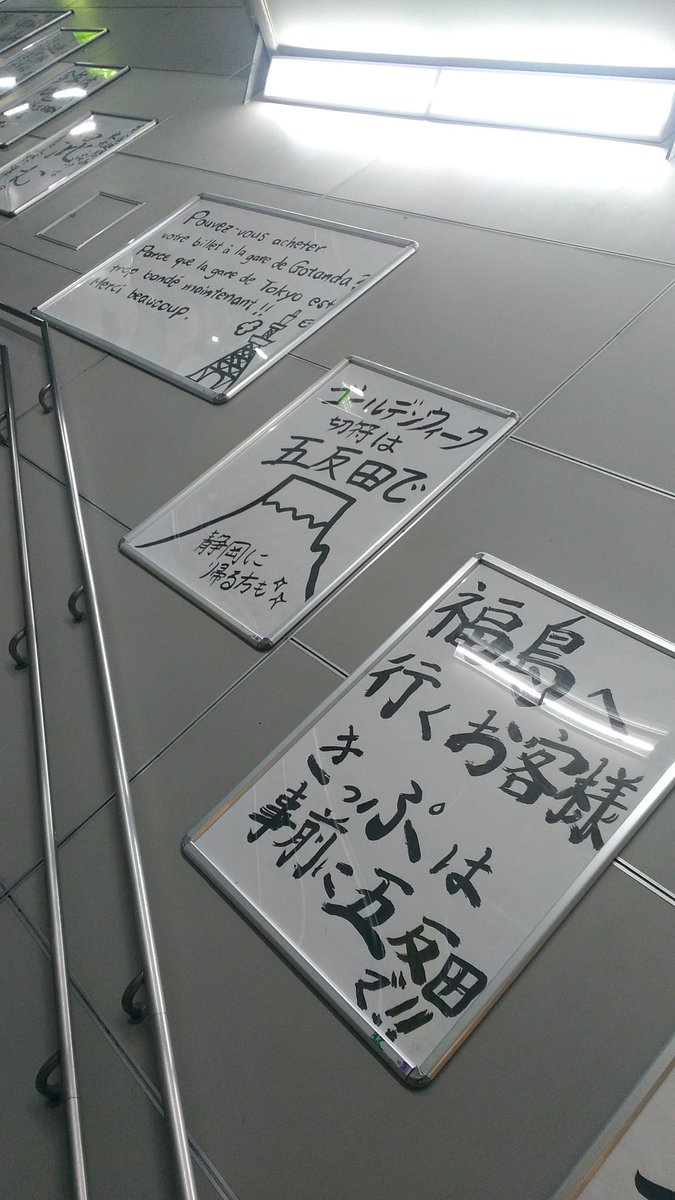 Pouvez-vous acheter
votre billet à la gare de Gotanda?
Parce que la gare de Tokyo est
trop bondé maintenant!!
Merci beaucoup.
ゴールデンウィーク
切符は
五反田で
静岡に
帰る方も☆☆
福島へ
行くお客様
きっぷは
事前に五反田
で!!